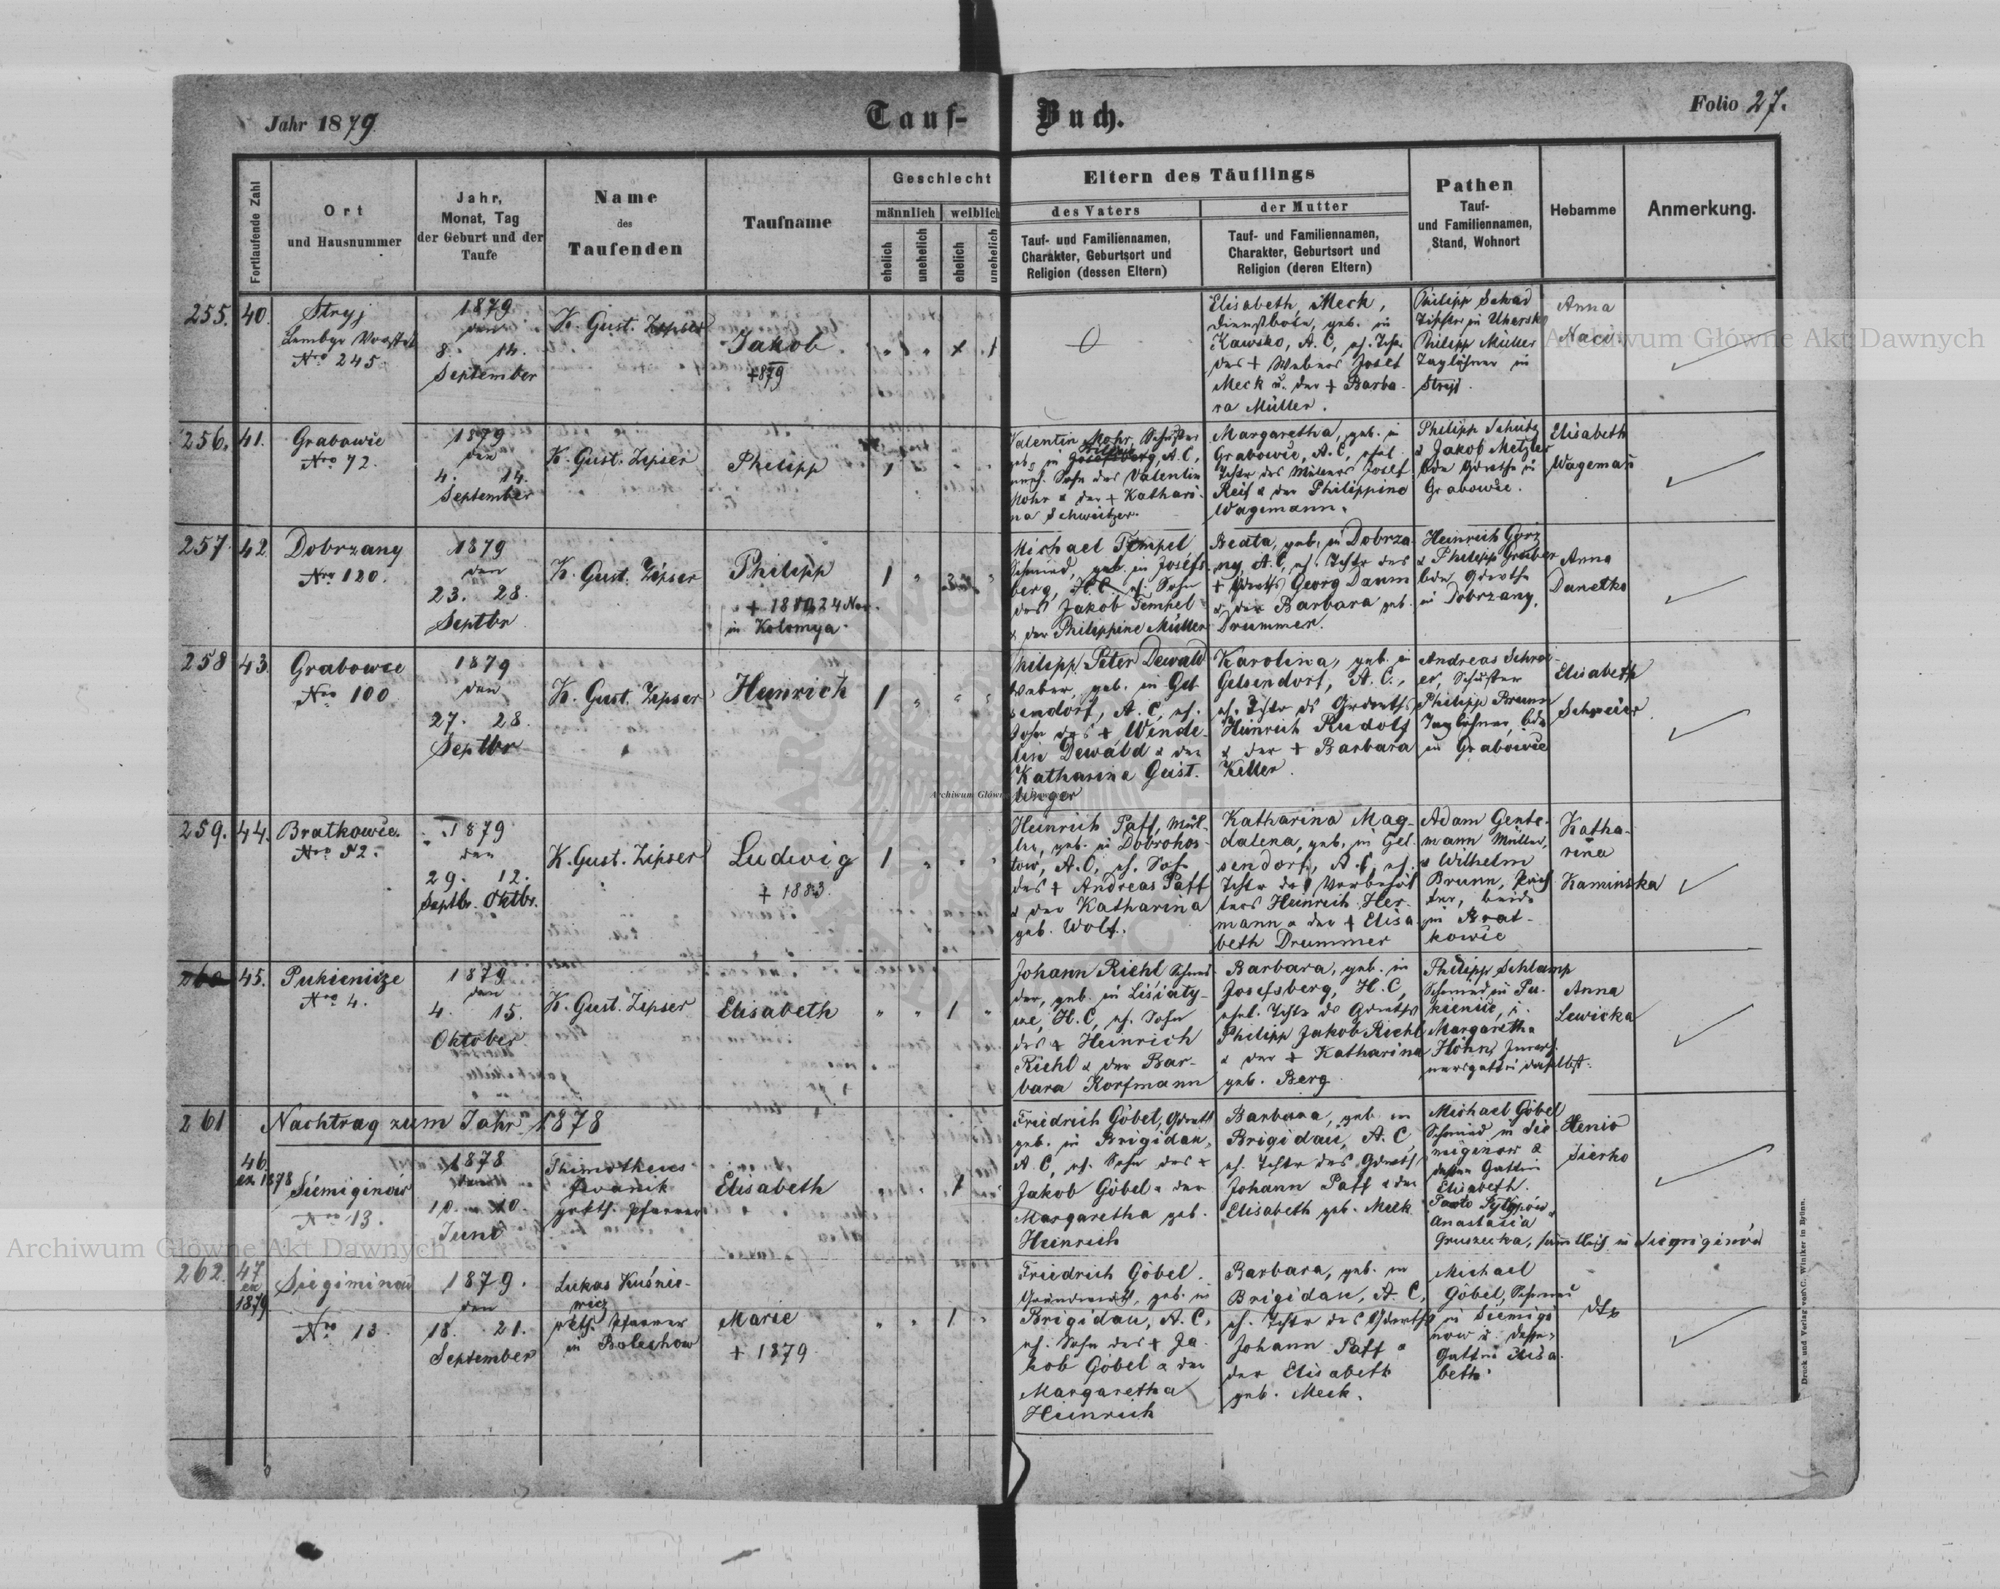 Jahr 1879
Tauf-Buch.
Folio 27.
Fortlaufende Zahl
Ort
und Hausnummer
Jahr,
Monat, Tag
der Geburt und der
Taufe
Name
des
Taufenden
Taufname
Geschlecht
männlich
weiblich
ehelich
unehelich
ehelich
unehelich
Eltern des Täuflings
des Vaters
Tauf- und Familiennamen,
Charakter, Geburtsort und
Religion (dessen Eltern)
der Mutter
Tauf- und Familiennamen,
Charakter, Geburtsort und
Religion (deren Eltern)
Pathen
Tauf-
und Familiennamen,
Stand, Wohnort
Hebamme
Anmerkung.
255. 40.
Stryj
Lembgr Vorstdt
Nro 245.
1879
den
8. 14.
September
K. Gust. Zipser
Jakob
+ 879
Elisabeth Meck,
Dienstbote, geb. in
Kawsko, A. C, eh. Tchtr
des + Webers Josef
Meck u. der + Barba-
ra Müller.
Philipp Schad
Tischler in Uhersko
Philipp Müller
Taglöhner in
Stryj.
Anna
256. 41.
Grabowce
Nro 72.
1879
den
4. 14.
September
K. Gust. Zipser
Philipp
1
Valentin Mohr, Schuster
geb. in Josefsberg, A. C,
des Valentin
Mohr & der + Kathari-
na Schweitzer.
Margaretha, geb. in
Grabowce, A. C, ehel.
Tchtr des Müllers Josef
Reis & der Philippine
Wagemann.
Philipp Schütz
& Jakob Metzler
bde Gdwrthe in
Grabowce.
Elisabeth
Wageman
257. 42.
Dobrzany
Nro 120.
1879
den
23. 28.
Septbr
K. Gust. Zipser
Philipp
in Kolomya.
1
Michael Tempel
Schmied, geb. in Josefs-
berg, H. C. eh. Sohn
des Jakob Tempel
& der Philippine Müller
Beata, geb. in Dobrza
ny, A. C, eh. Tchtr des
+ Gdwrths Georg Daum
& der Barbara geb.
Drummer.
Heinrich Görz
& Philipp Gruber
bde Gdwrthe
in Dobrzany.
Anna
Danetko
258 43.
Grabowce
Nro 100.
1879
den
27. 28.
Septbr
K. Gust. Zipser
Heinrich
1
Philipp Peter Dewald
Weber, geb. in Gel
sendorf, A. C, eh.
Sohn des + Wende-
lin Dewald & der
Katharina Geist-
linger
Karolina, geb. in
Gelsendorf, A. C.,
eh. Tchtr ds Grdwrths
Heinrich Rudolf
& der + Barbara
Keller.
Andreas Schrei-
er, Schuster
Philipp Brunn
Taglöhner, bde
in Grabowce
Elisabeth
Schreier
259. 44.
Bratkowce.
Nro 52.
1879
den
29. 12.
Septbr. Oktbr.
K. Gust. Zipser
Ludwig
+ 1883.
1
Heinrich Paff, Mül-
ler, geb. in Dobrohos-
tow, A. C, eh. Sohn
des + Andreas Paff
& der Katharina
geb. Wolf.
Katharina Mag-
dalena, geb. in Gel
sendorf, A. C, eh.
Heinrich Her-
mann & der + Elisa
beth Drummer
Adam Gente-
mann Müller,
& Wilhelm
Brunn, Päch
ter, beide
in Brat-
kowce
Katha-
rina
Kaminska
260 45.
Pukienicze
Nro 4.
1879
den
4. 15.
Oktober
K. Gust. Zipser
Elisabeth
1
Johann Riehl, Schnei-
der, geb. in Lisiaty-
cze, H. C, eh. Sohn
des + Heinrich
Riehl & der Bar-
bara Korfmann
Barbara, geb. in
Josefsberg, H. C,
ehel. Tchtr ds Grdwrths
Philipp Jakob Riehl
& der + Katharina
geb. Berg.
Philipp Schlamp
Schmied in Pu-
kienice, i.
Margaretha
Höhn,
Anna
Lewicka
261
Nachtrag zum Jahr 1878
46.
ex 1878
Siemiginow
Nro 13.
1878
den
10. 10.
Juni
Thimotheus
Jwanik
grkth. Pfarrer
Elisabeth
1
Friedrich Göbel, Gdwrth
geb. in Brigidau,
A. C, eh. Sohn des +
Jakob Göbel & der
Margaretha geb.
Heinrich
Barbara, geb. in
Brigidau, A. C,
eh. Tchtr des Gdwrths
Johann Paff & der
Elisabeth geb. Meck
Michael Göbel
Schmied in Sie
miginow &
dessen Gattin
Elisabeth.
Anastasia
Gruszecka, sämtlich in Siemiginów
Henio
Sierko
262. 47
ex
1879
Siegiminau
Nro 13.
1879.
den
18. 21.
September
Lukas Kuśnie-
wicz
rkth. Pfarrer
in Bolechow
Marie
+ 1879.
1
Friedrich Göbel.
Grundwirth, geb. in
Brigidau, A. C,
eh. Sohn des + Ja-
kob Göbel & der
Margaretha
Heinrich
Barbara, geb. in
Brigidau, A. C,
eh. Tchtr des Gdwrths
Johann Paff &
der Elisabeth
geb. Meck.
Michael
Göbel, Schmied
in Siemigi
now & dessen
Gattin Elisa
beth.
dto
Druck und Verlag von C. Winiker in Brünn.
Archiwum Główne Akt Dawnych
Archiwum Główne Akt Dawnych